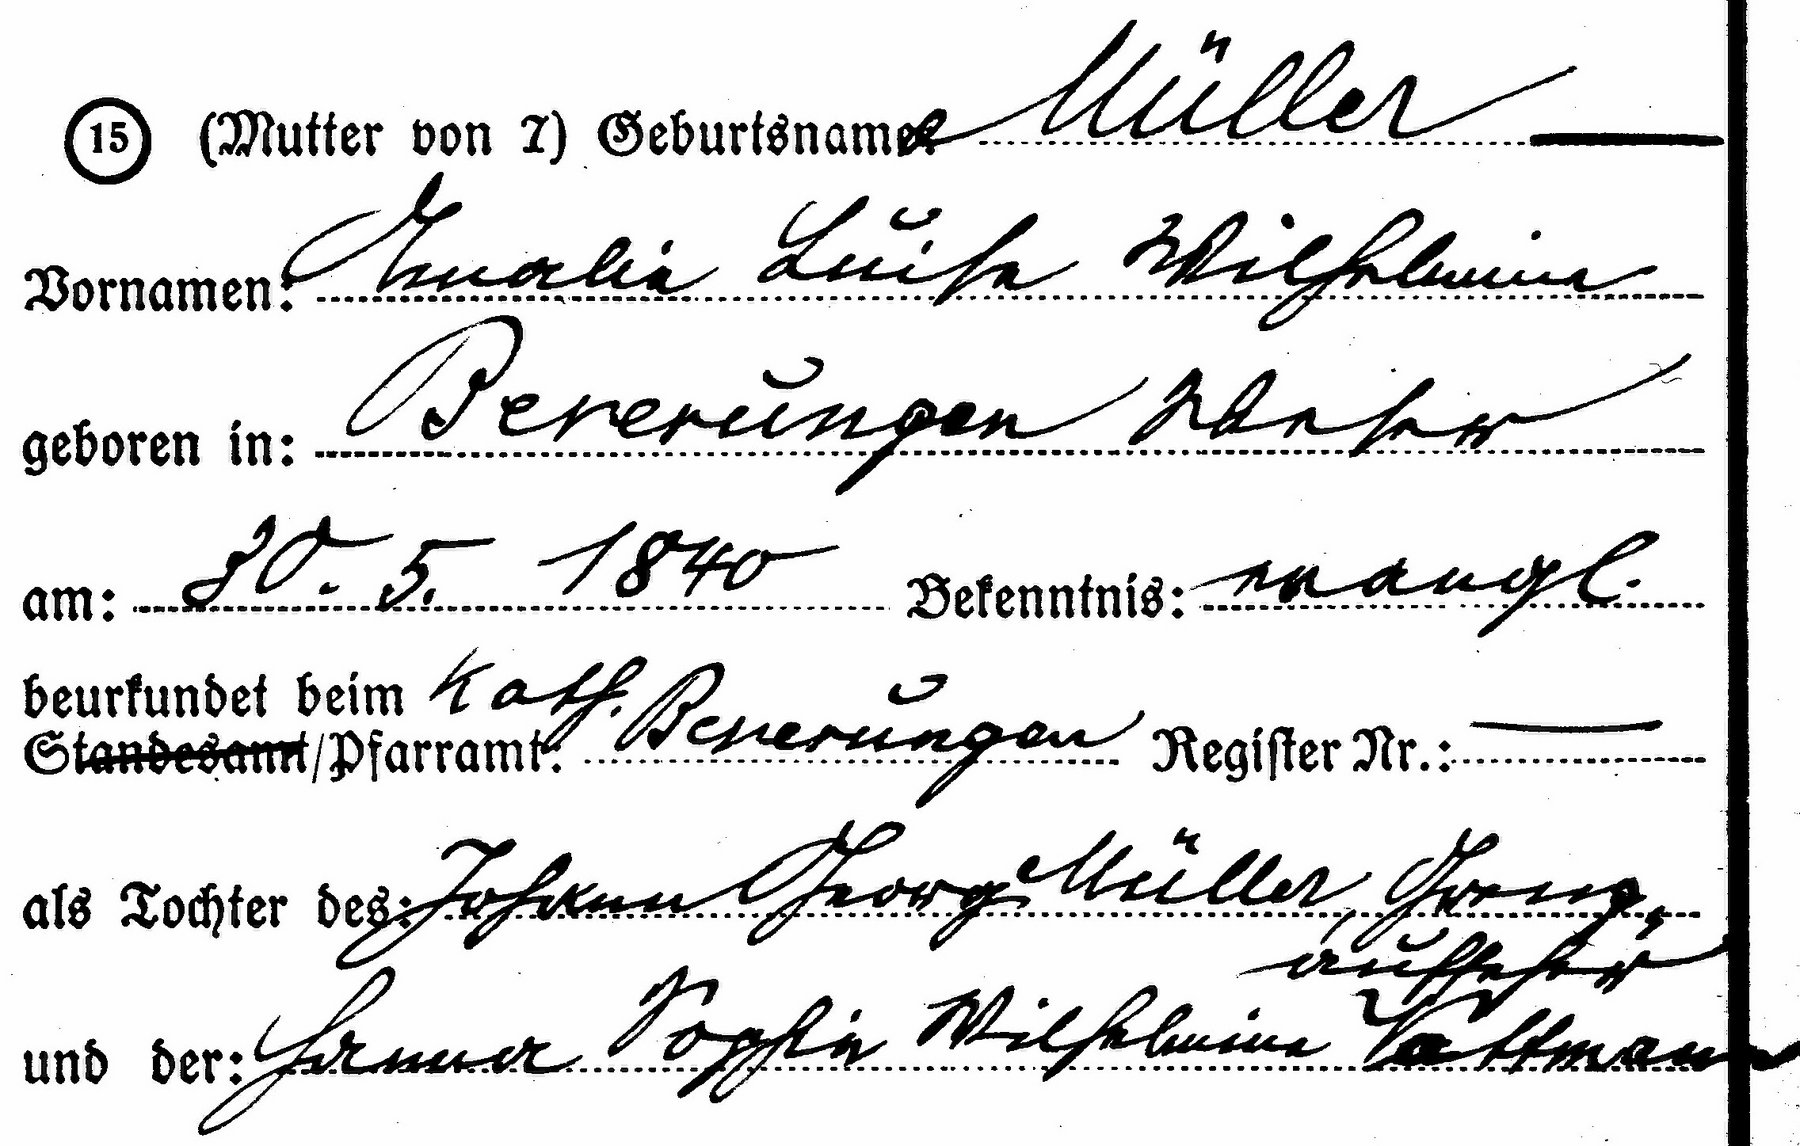 15 (Mutter von 7) Geburtsname: Müller
Vornamen: Amalie Luise Wilhelmine
geboren in: Beverungen Weser
am: 30. 5. 1840 Bekenntnis: evangl.
beurkundet beim kath.
Standesamt/Pfarramt: Beverungen Register Nr.: —
als Tochter des: Johann Georg Müller, Grenz-
aufseher
und der: Hanna Sophie Wilhelmine